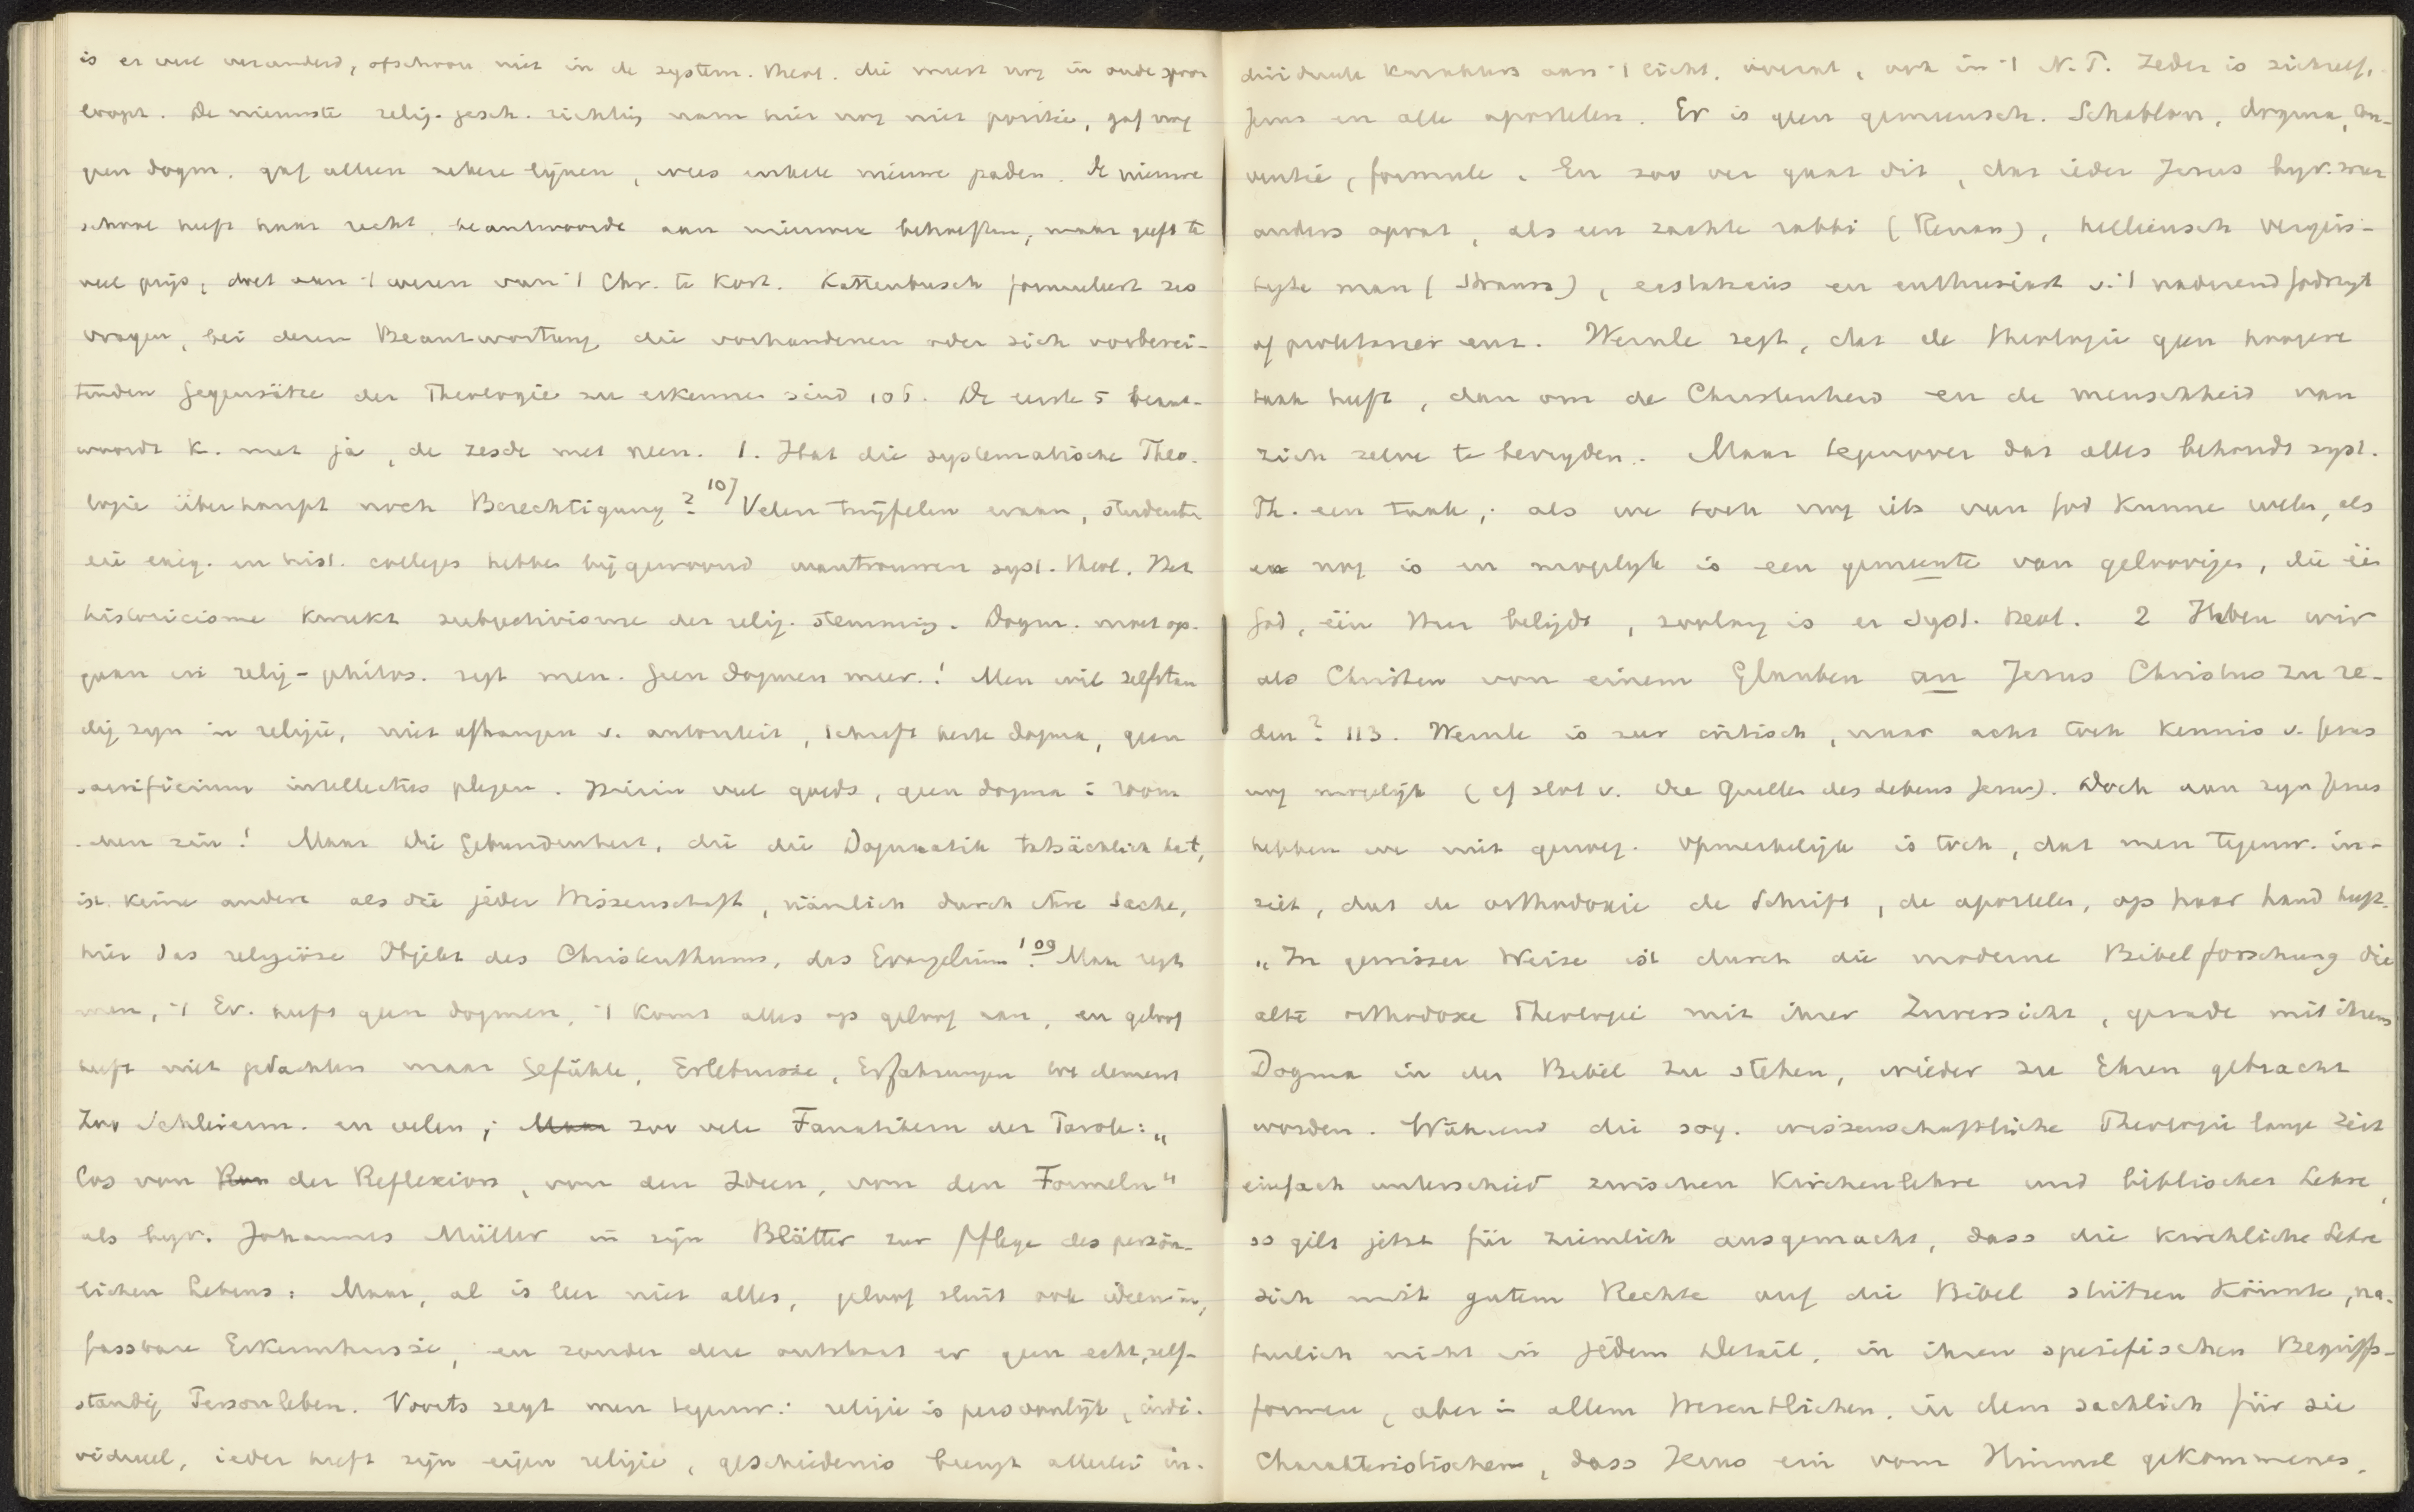 is er veel veranderd, ofschoon niet in de system. theol. die meest nog in oude spoor
loopt. De nieuwste relig. gesch. richting nam hier nog niet positie, gaf nog
geen dogm. gaf alleen zekere lijnen, wees enkele nieuwe paden. De nieuwe
school heeft haar recht, beantwoordt aan nieuwere behoeften, maar geeft te
veel prijs, doet aan 't wezen van 't Chr. te kort. Kattenbusch formuleert zes
vragen, bei deren Beantwortung die vorhandenen oder sich vorberei-
tenden Gegensätze der Theologie zu erkennen sind 106. De eerste 5 beant-
woordt K. met ja, de zesde met neen. 1. Hat die systematische Theo-
logie überhaupt noch Berechtigung? 107 Velen twijfelen eraan, studenten
die exeg. en hist. colleges hebben bijgewoond wantrouwen syst. theol. Het
historicisme kweekt subjectivisme der relig. stemming. Dogm. moet op-
gaan in relig-philos. zegt men. Geen dogmen meer! Men wil zelfstan
dig zijn in religie, niet afhangen v. autoriteit, schrift kerk dogma, geen
sacrificium intellectus plegen. Hierin veel goeds, geen dogma i room-
schen zin! Maar die Gebundenheit, die die Dogmatik tatsächlich hat,
ist keine andere als die jeder Wissenschaft, nämlich durch ihre Sache,
hier das religiöse Objekt des Christenthums, das Evangelium. 109 Maar zegt
men, 't Ev. heeft geen dogmen, 't komt alles op geloof aan, en geloof
heeft niet gedachten maar Gefühle, Erlebnisse, Erfahrungen tot element
Zoo Schleierm. en velen; Maar zoo vele Fanatikern der Parole: „
los von Rom der Reflexion, von den Ideen, von den Formeln"
als bijv. Johannes Müller in zijn Blätter zur Pflege des persön-
lichen Lebens: Maar, al is leer niet alles, geloof sluit ook ideeën in,
fassbare Erkenntnisse, en zonder deze ontstaat er geen echt, zelf-
standig Personleben. Voorts zegt men tegenw.: religie is persoonlijk, indi-
vidueel, ieder heeft zijn eigen religie, geschiedenis brengt allerlei in-
dividueele karakters aan 't licht, overal, ook in 't N.T. Ieder is zichzelf,
Jezus en alle apostelen. Er is geen gemeensch. Schablone, dogma, con-
ventie, formule. En zoo ver gaat dit, dat ieder Jezus bijv. weer
anders opvat, als een zachte rabbi (Renan), helleensch vergees-
telijkt man (Strauss), ecstaticus en enthusiast v. 't naderend godsrijk
of proletariër enz. Wernle zegt, dat de theologie geen hoogere
taak heeft, dan om de Christenheid en de menschheid van
zich zelve te bevrijden. Maar tegenover dat alles behoudt syst.
Th. een taak; als we toch nog iets van God kunnen weten, als
er nog is en mogelijk is een gemeente van geloovigen, die één
God, één Heer belijdt, zoolang is er syst. theol. 2 Haben wir
als Christen von einem Glauben an Jesus Christus zu re-
den? 113. Wernle is zeer critisch, maar acht toch kennis v. Jezus
nog mogelijk (cf slot v. die Quellen des Lebens Jesu). Doch aan zijn Jezus
hebben we niet genoeg. Opmerkelijk is toch, dat men tegenw. in-
ziet, dat de orthodoxie de Schrift, de apostelen, op haar hand heeft.
„In gewisser Weise ist durch die moderne Bibelforschung die
alte orthodoxe Theologie mit ihrer Zuversicht, gerade mit ihrem
Dogma in der Bibel zu stehen, wieder zu Ehren gebracht
worden. Während die sog. wissenschaftliche Theologie lange Zeit
einfach unterschied zwischen Kirchenlehre und biblischer Lehre,
so gilt jetzt für ziemlich ausgemacht, dass die kirchliche Lehre
sich mit gutem Rechte auf die Bibel stützen könnte, na-
türlich nicht in jedem Detail, in ihren spezifischen Begriffs-
formen, aber in allem Wesentlichen, in dem sachlich für sie
Charakteristischen, dass Jesus ein vom Himmel gekommenes,